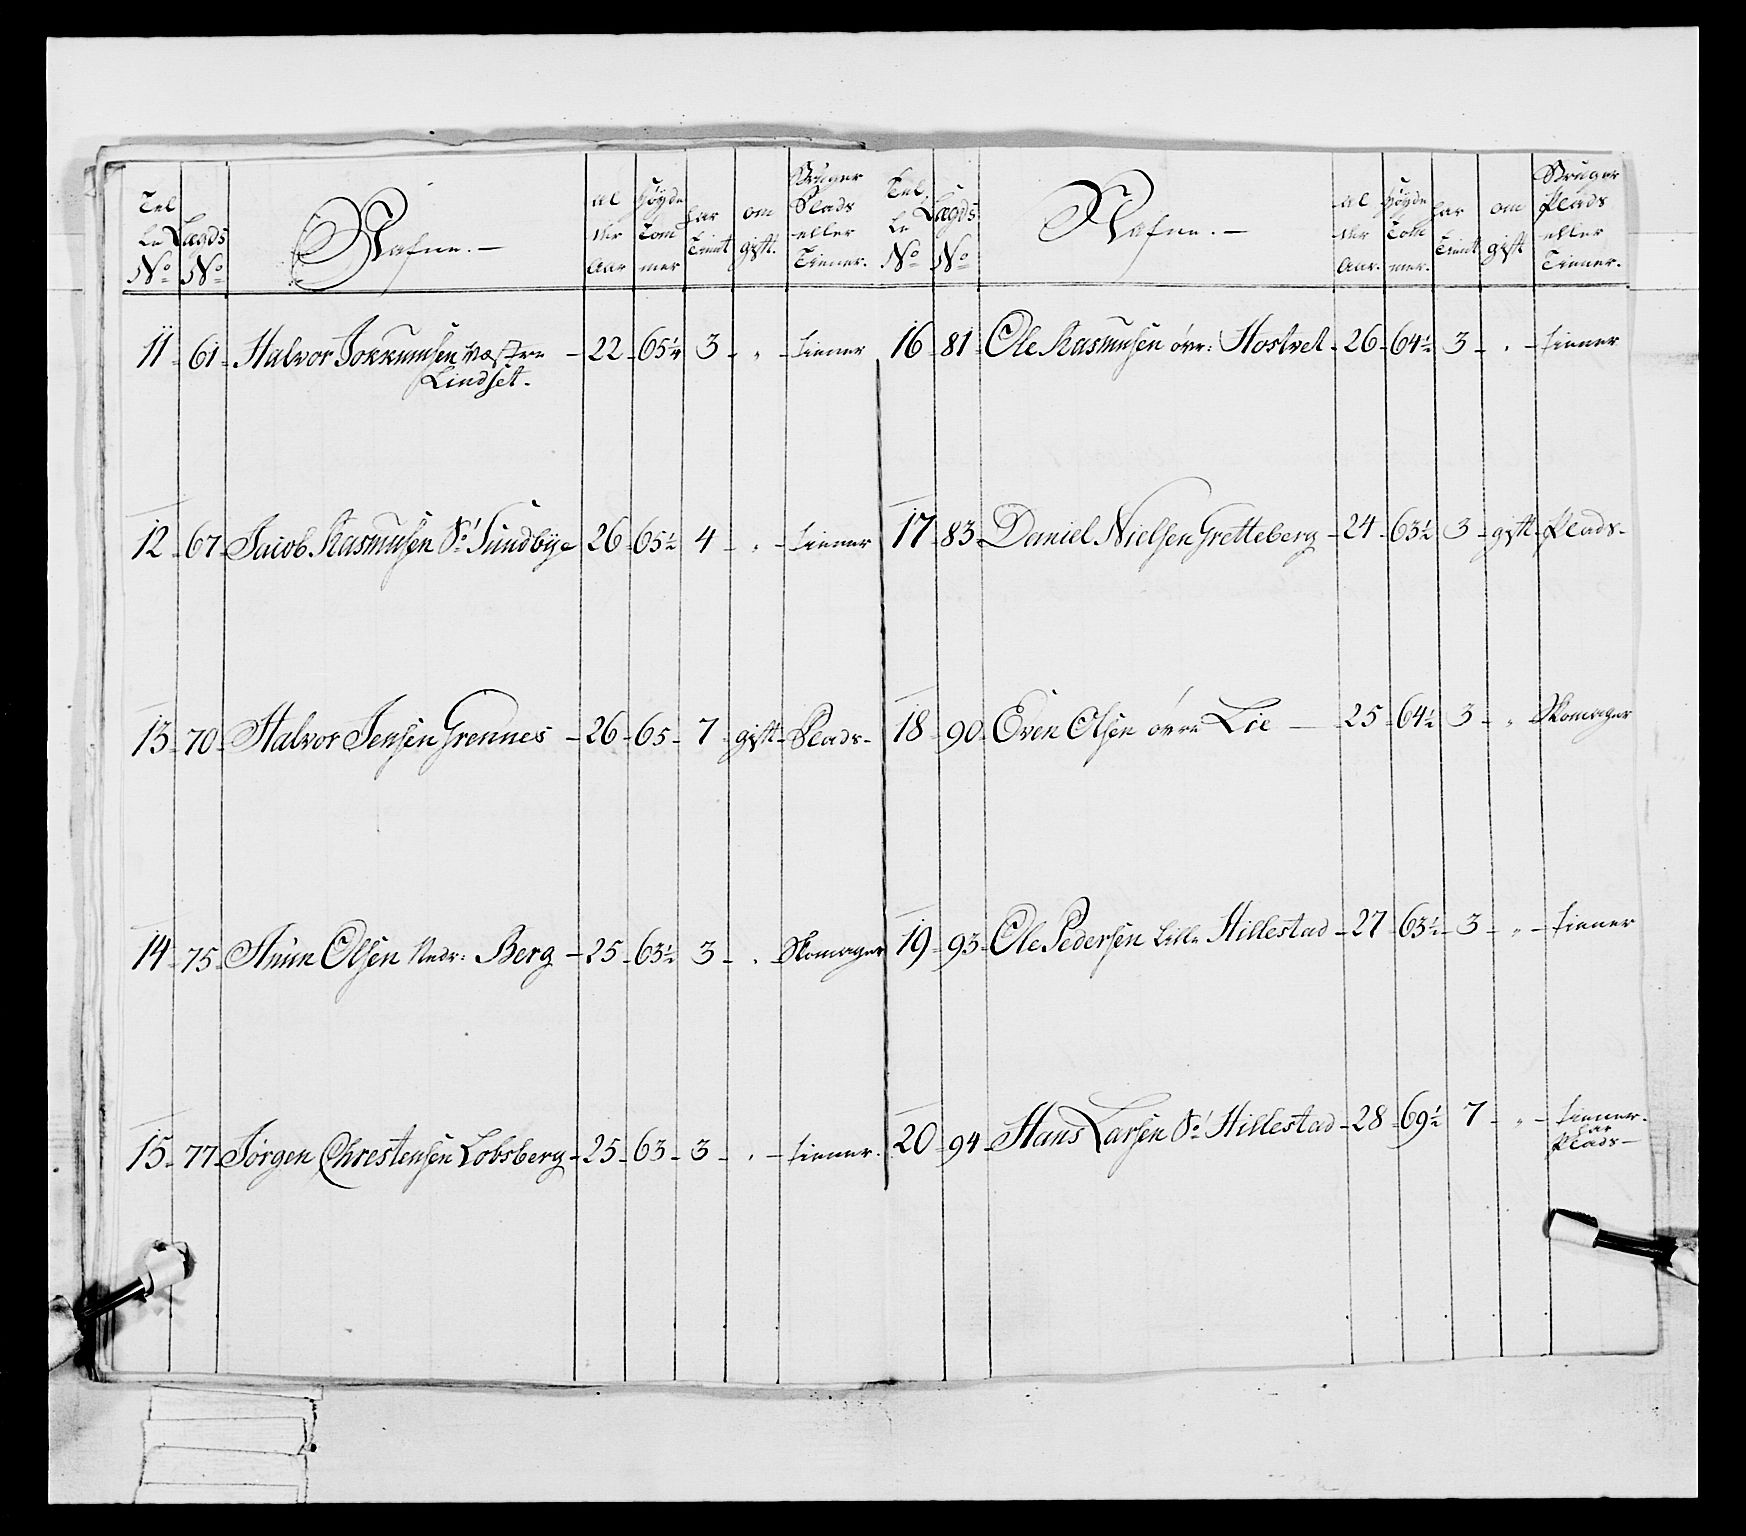 Tel
le
No
Lægds
No
Nafne. —
al
der
Aar
Høyde
Tom
mer
har
tient
om
gift.
Bruger
Plads
eller
Tienner.
11 - 61 - Halvor Jokkumsen Væstre - 22 - 65 1/4 3 - " - tienner
Lindset.
12 - 67 - Jacob Rasmusen St: Sundbye 26 - 65 1/2 4 - " - tienner
13 - 70 - Halvor Jensen Grennes - 26 - 65 - 7 - gift - Plads -
14 - 75 - Olsen Nedr: Berg - 25 - 63 1/2 3 - " - Skomager
15 - 77 - Jørgen Chrestensen Lobsberg - 25 - 63 - 3 - " - tienner.
Tel
le
No
Lægds
No
Nafne. —
al
der
Aar.
Høyde
Tom
mer.
har
tient
om
gift
Bruger
Plads
eller
Tienner.
16 - 81 - Ole Rasmusen øvr: Hostvet - 26 - 64 1/2 3 - " - tienner
17 - 83 - Daniel Nielsen Gretteberg - 24 - 63 1/2 3 - gift - Plads -
18 - 90 - Even Olsen øvre Lie — 25 - 64 1/2 3 - " Skomager
19 - 93 - Ole Pedersen Lille Hillestad - 27 - 63 1/2 - 3 - " - tienner
20 - 94 - Hans Larsen St: Hillestad - 28 - 69 1/2 7 - " - tienner.
har
Plads —